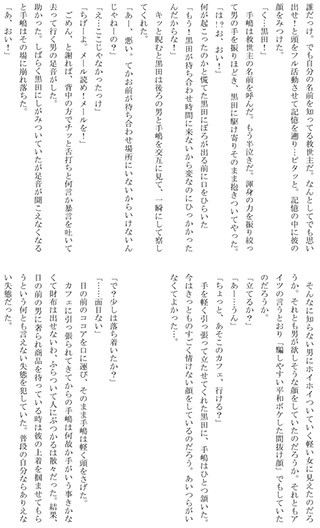 誰だっけ、でも自分の名前を知ってる救世主だ。なんとしてでも思い
出せ！と頭をフル活動させて記憶を遡り…ピタッと。記憶の中に彼の
顔をみつけた。
「く…黒田！」
　手嶋は救世主の名前を呼んだ。もう半泣きだ。渾身の力を振り絞っ
て男の手を振りほどき、黒田に駆け寄りそのまま抱きついてやった。
「はっ!?お、おい！」
　何が起こったのかと慌てた黒田にぼろが出る前に口をひらいた
「もう！黒田が待ち合わせ時間に来ないから変なのにひっかかった
んだからな！」
　キッと睨むと黒田は後ろの男と手嶋を交互に見て、一瞬にして察し
てくれた。
「あー…悪い。てかお前が待ち合わせ場所にいないからいけないん
じゃねーの？」
「え！ここじゃなかったっけ」
「ちげーよ。メール読め！メールを！」
　ごめん、と謝れば、背中の方でチッと舌打ちと何言か暴言を吐いて
去って行く男の足音がした。
　助かった。しばらく黒田にしがみついていたが足音が聞こえなくなる
と手嶋はその場に崩れ落ちた。
「あ、おい！」
　そんなに知らない男にホイホイついていく軽い女に見えたのだろ
うか。それとも男が欲しそうな顔をしていたのだろうか。それともア
イツの言うとおり「騙しやすい平和ボケした間抜け顔」でもしていた
のだろうか。
「立てるか？」
「あー…うん」
「ちょっと、あそこのカフェ、行ける？」
　手を軽く引っ張って立たせてくれた黒田に、手嶋はひとつ頷いた。
今はきっとものすごく情けない顔をしているのだろう。あいつらがい
なくてよかった…。
「で？少しは落ち着いたか？」
「……面目ない」
　目の前のココアを口に運び、そのまま手嶋は軽く頭をさげた。
　カフェに引っ張られてきてからの手嶋は何故か手がいう事きかな
くて財布は出せないわ、つまずいて人にぶつかるは散々だった。結果、
目の前の男に奢られ商品を待っている時は彼の上着を掴ませてもら
うという何とも言えない失態を犯していた。普段の自分ならありえな
い失態だった。